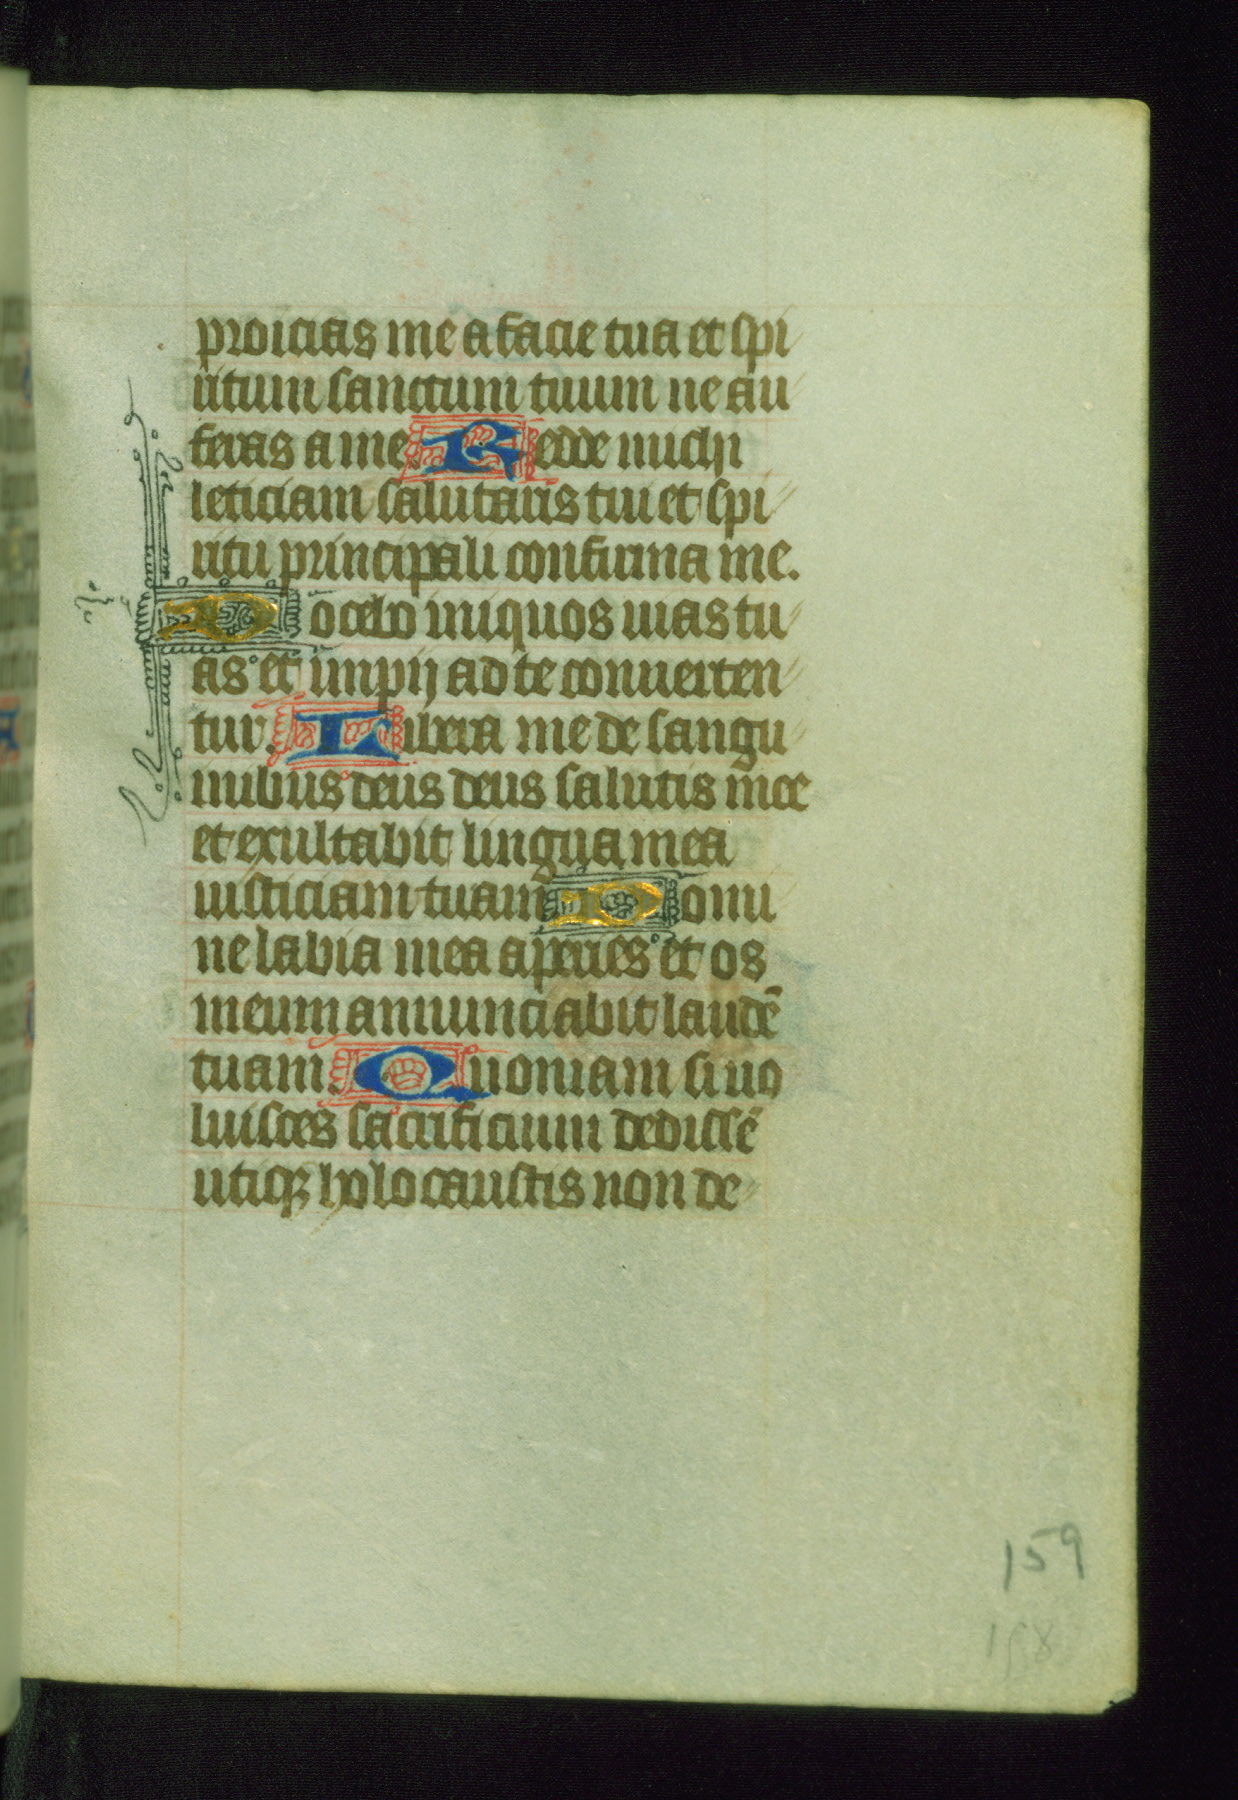 proicias me a facie tua et spi
ritum sanctum tuum ne au
feras a me. Redde michi
leticiam salutaris tui et spi
ritu principali confirma me.
Docebo iniquos uias tu
as et impij ad te conuerten
tur. Libera me de sangui
nibus deus deus salutis mee
et exultabit lingua mea
iusticiam tuam Domi
ne labia mea aperies et os
meum annunciabit laudē
tuam. Quoniam si uo
luisses sacrificium dedissē
utiqꝫ holocaustis non de
159
158